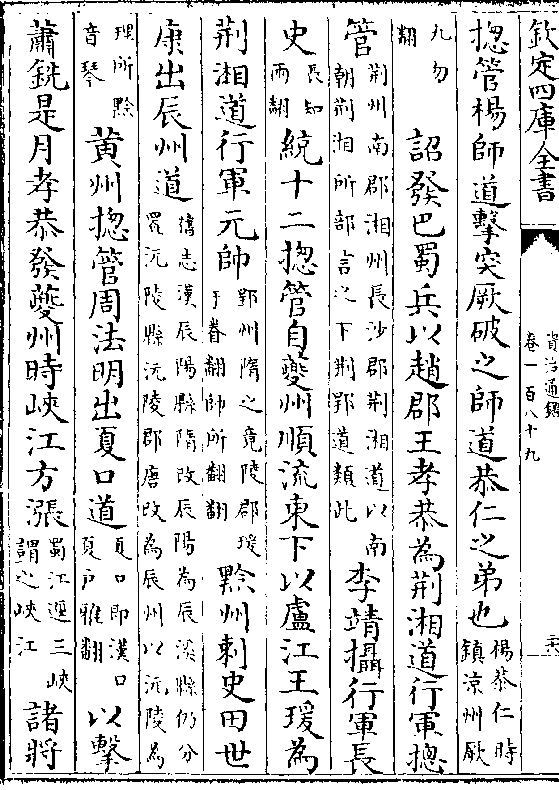 欽定四庫全書
資治通鑑
卷一百八十九
揔管楊師道擊突厥破之師道恭仁之弟也楊恭仁時
鎮涼州厥
九勿
翻
詔發巴蜀兵以趙郡王孝恭為荆湘道行軍揔
管荆州南郡湘州長沙郡荆湘道以南
朝荆湘所部言之下荆郢道類此
李靖攝行軍長
史長知
兩翻
統十二揔管自夔州順流東下以廬江王瑗為
荆湘道行軍元帥郢州隋之竟陵郡瑗
于眷翻帥所翻翻
黔州刺史田世
康出辰州道舊志漢辰陽縣隋改辰陽為辰溪縣仍分
置沅陵縣沅陵郡唐改為辰州以沅陵為
理所黔
音琴
黄州揔管周法明出夏口道夏口即漢口
夏户雅翻
以擊
蕭銑是月孝恭發夔州時峽江方漲蜀江運三峽
謂之峽江
諸將